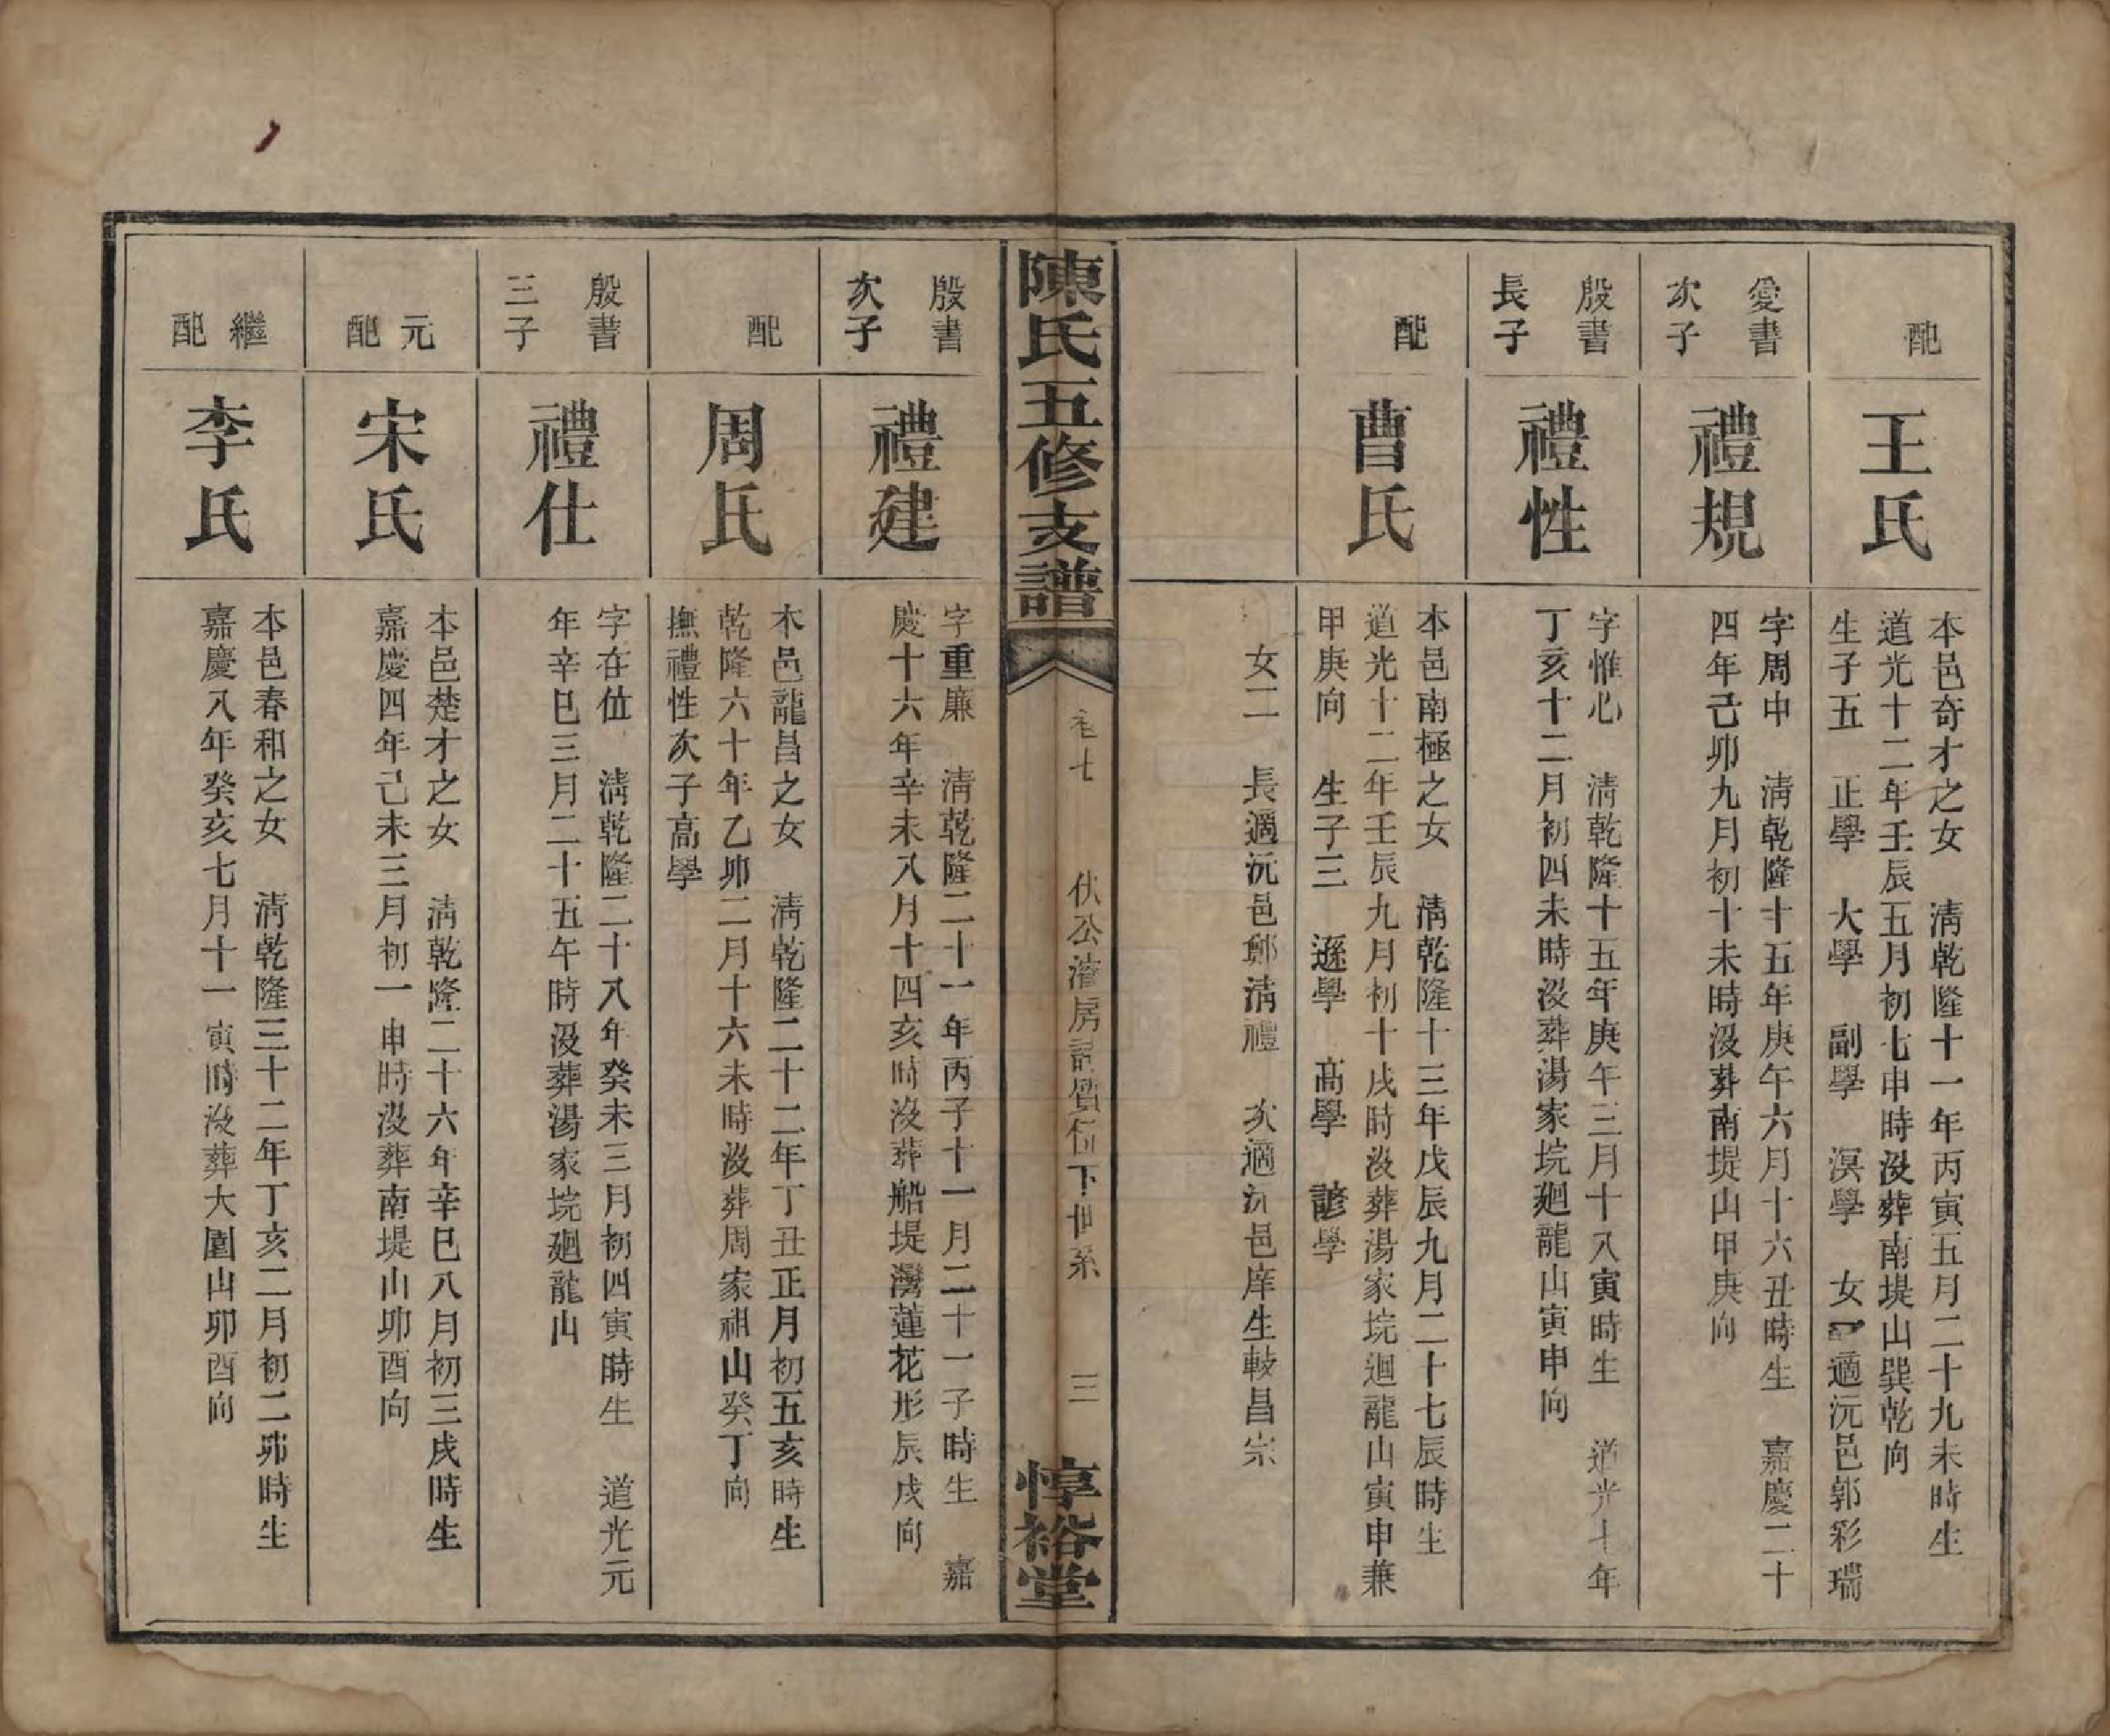 配
王氏
本邑奇才之女　清乾隆十一年丙寅五月二十九未時生
道光十二年壬辰五月初七申時沒葬南堤山巽乾向
生子五　正學　大學　副學　溟學　女　適沅邑郭彩瑞
愛書
次子
禮規
字周中　清乾隆十五年庚午六月十六丑時生　嘉慶二十
四年己卯九月初十未時沒葬南堤山甲庚向
殷書
長子
禮性
字惟心　清乾隆十五年庚午三月十八寅時生　道光七年
丁亥十二月初四未時沒葬湯家垸廻龍山寅申向
配
曹氏
本邑南極之女　清乾隆十三年戊辰九月二十七辰時生
道光十二年壬辰九月初十戌時沒葬湯家垸迴龍山寅申兼
甲庚向　生子三　遜學　高學　諺學
女二　長適沅邑鄭清禮　次適沅邑庠生轅昌宗
陳氏五修支譜
卷七
伏公濬房　下世系
三
惇裕堂
殷書
次子
禮建
字重廉　清乾隆二十一年丙子十一月二十一子時生　嘉
慶十六年辛未八月十四亥時沒葬船堤灣蓮花形辰戌向
配
周氏
本邑龍昌之女　清乾隆二十二年丁丑正月初五亥時生
乾隆六十年乙卯二月十六未時沒葬周家祖山癸丁向
撫禮性次子高學
殷書
三子
禮仕
字在位　清乾隆二十八年癸未三月初四寅時生　道光元
年辛巳三月二十五午時沒葬湯家垸廻龍山
元
配
宋氏
本邑楚才之女　清乾隆二十六年辛巳八月初三戌時生
嘉慶四年己未三月初一申時沒葬南堤山卯酉向
繼
配
李氏
本邑春和之女　清乾隆三十二年丁亥二月初二卯時生
嘉慶八年癸亥七月十一寅時沒葬大園山卯酉向